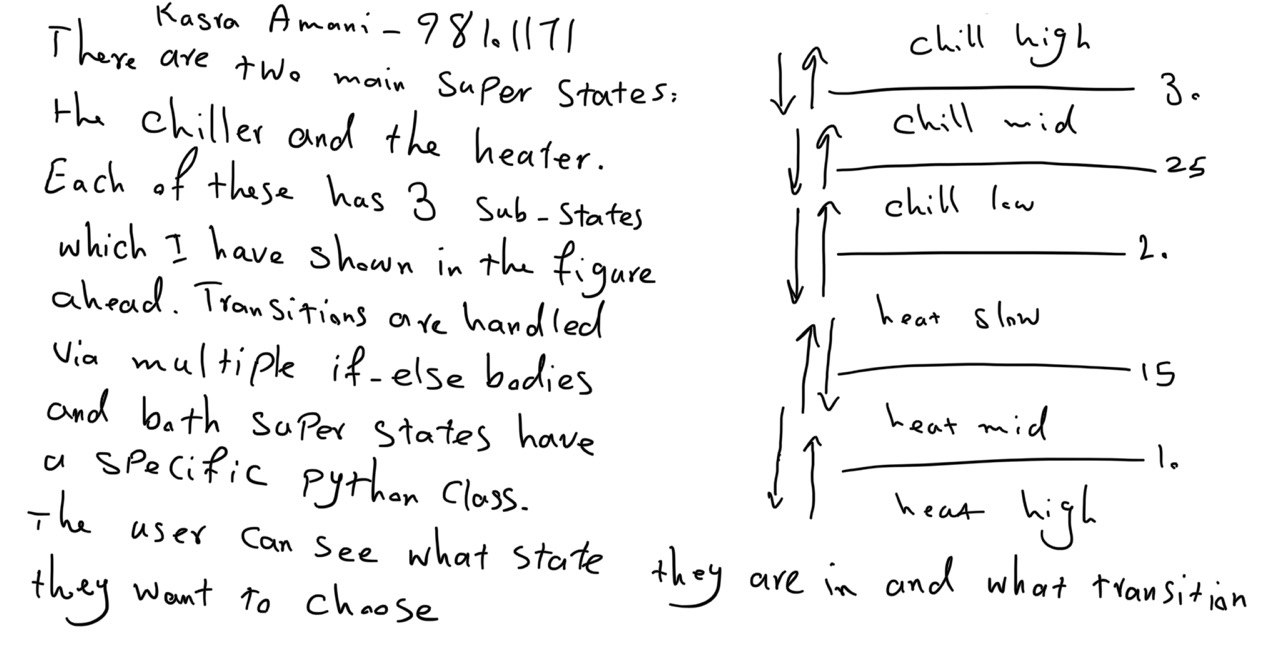 Kasra Amani - 981.1171
There are two main Super States:
the chiller and the heater.
Each of these has 3 Sub-States
which I have shown in the figure
ahead. Transitions are handled
via multiple if-else bodies
and both super states have
a specific python class.
The user can see what state they are in and what transition
they want to choose
chill high
3.
chill mid
25
chill low
2.
heat slow
15
heat mid
1.
heat high